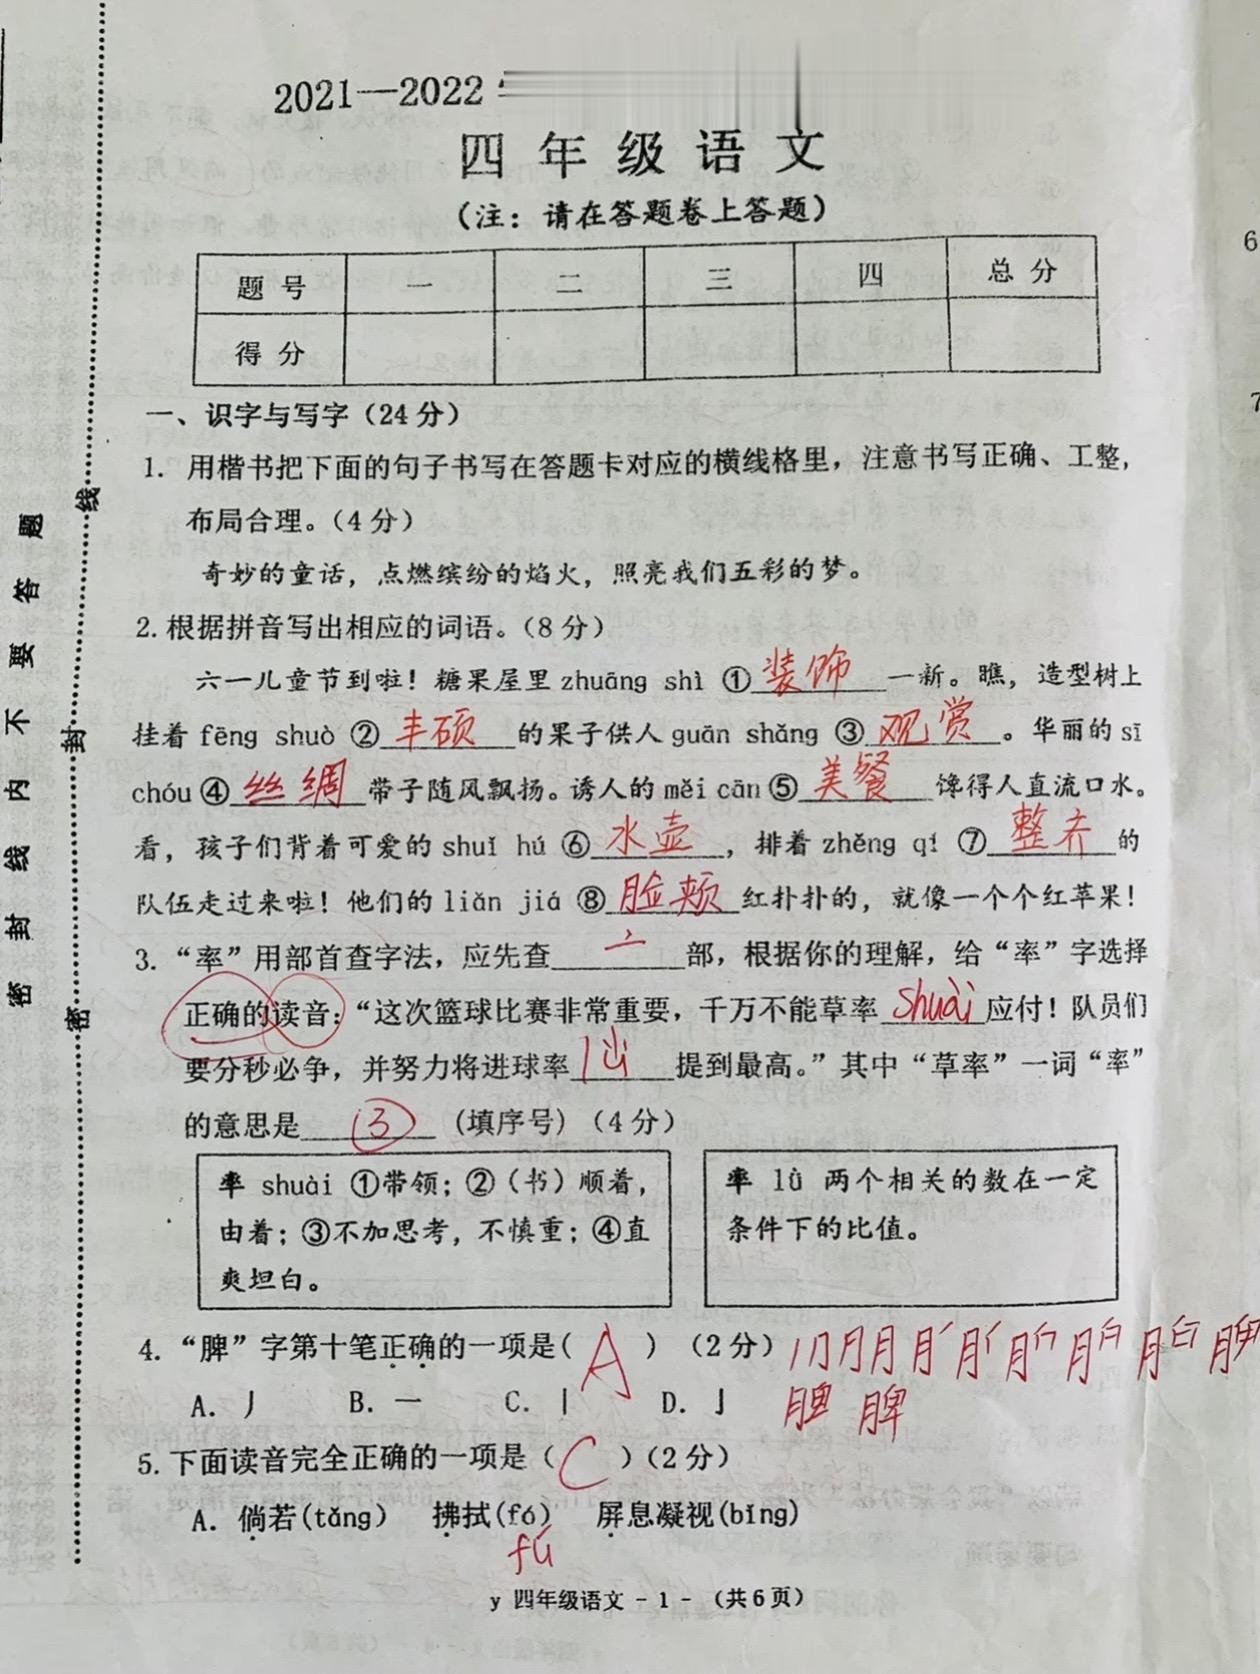 2021—2022
四年级语文
（注：请在答题卷上答题）
题号 一 二 三 四 总分
得分
一、识字与写字（24分）
1. 用楷书把下面的句子书写在答题卡对应的横线格里，注意书写正确、工整，
布局合理。（4分）
奇妙的童话，点燃缤纷的焰火，照亮我们五彩的梦。
2.根据拼音写出相应的词语。（8分）
六一儿童节到啦！糖果屋里zhuāng shì ①装饰一新。瞧，造型树上
挂着fēng shuò ②丰硕的果子供人guān shǎng ③观赏。华丽的sī
chóu ④丝绸带子随风飘扬。诱人的měi cān ⑤美餐馋得人直流口水。
看，孩子们背着可爱的shuǐ hú ⑥水壶，排着zhěng qí ⑦整齐的
队伍走过来啦！他们的liǎn jiá ⑧脸颊红扑扑的，就像一个个红苹果！
3. “率”用部首查字法，应先查亠部，根据你的理解，给“率”字选择
正确的读音：“这次篮球比赛非常重要，千万不能草率shuài应付！队员们
要分秒必争，并努力将进球率lǜ提到最高。”其中“草率”一词“率”
的意思是③（填序号）（4分）
率 shuài ①带领；②（书）顺着，
由着；③不加思考，不慎重；④直
爽坦白。
率 lǜ 两个相关的数在一定
条件下的比值。
4. “脾”字第十笔正确的一项是（A）（2分）
脾
A. 丿 B. 一 C. 丨 D. 亅
5. 下面读音完全正确的一项是（C）（2分）
A. 倘若(tǎng) 拂拭(fó) 屏息凝视(bǐng)
fú
y 四年级语文 - 1 - （共6页）
密封线内不要答题
密封线
6
7